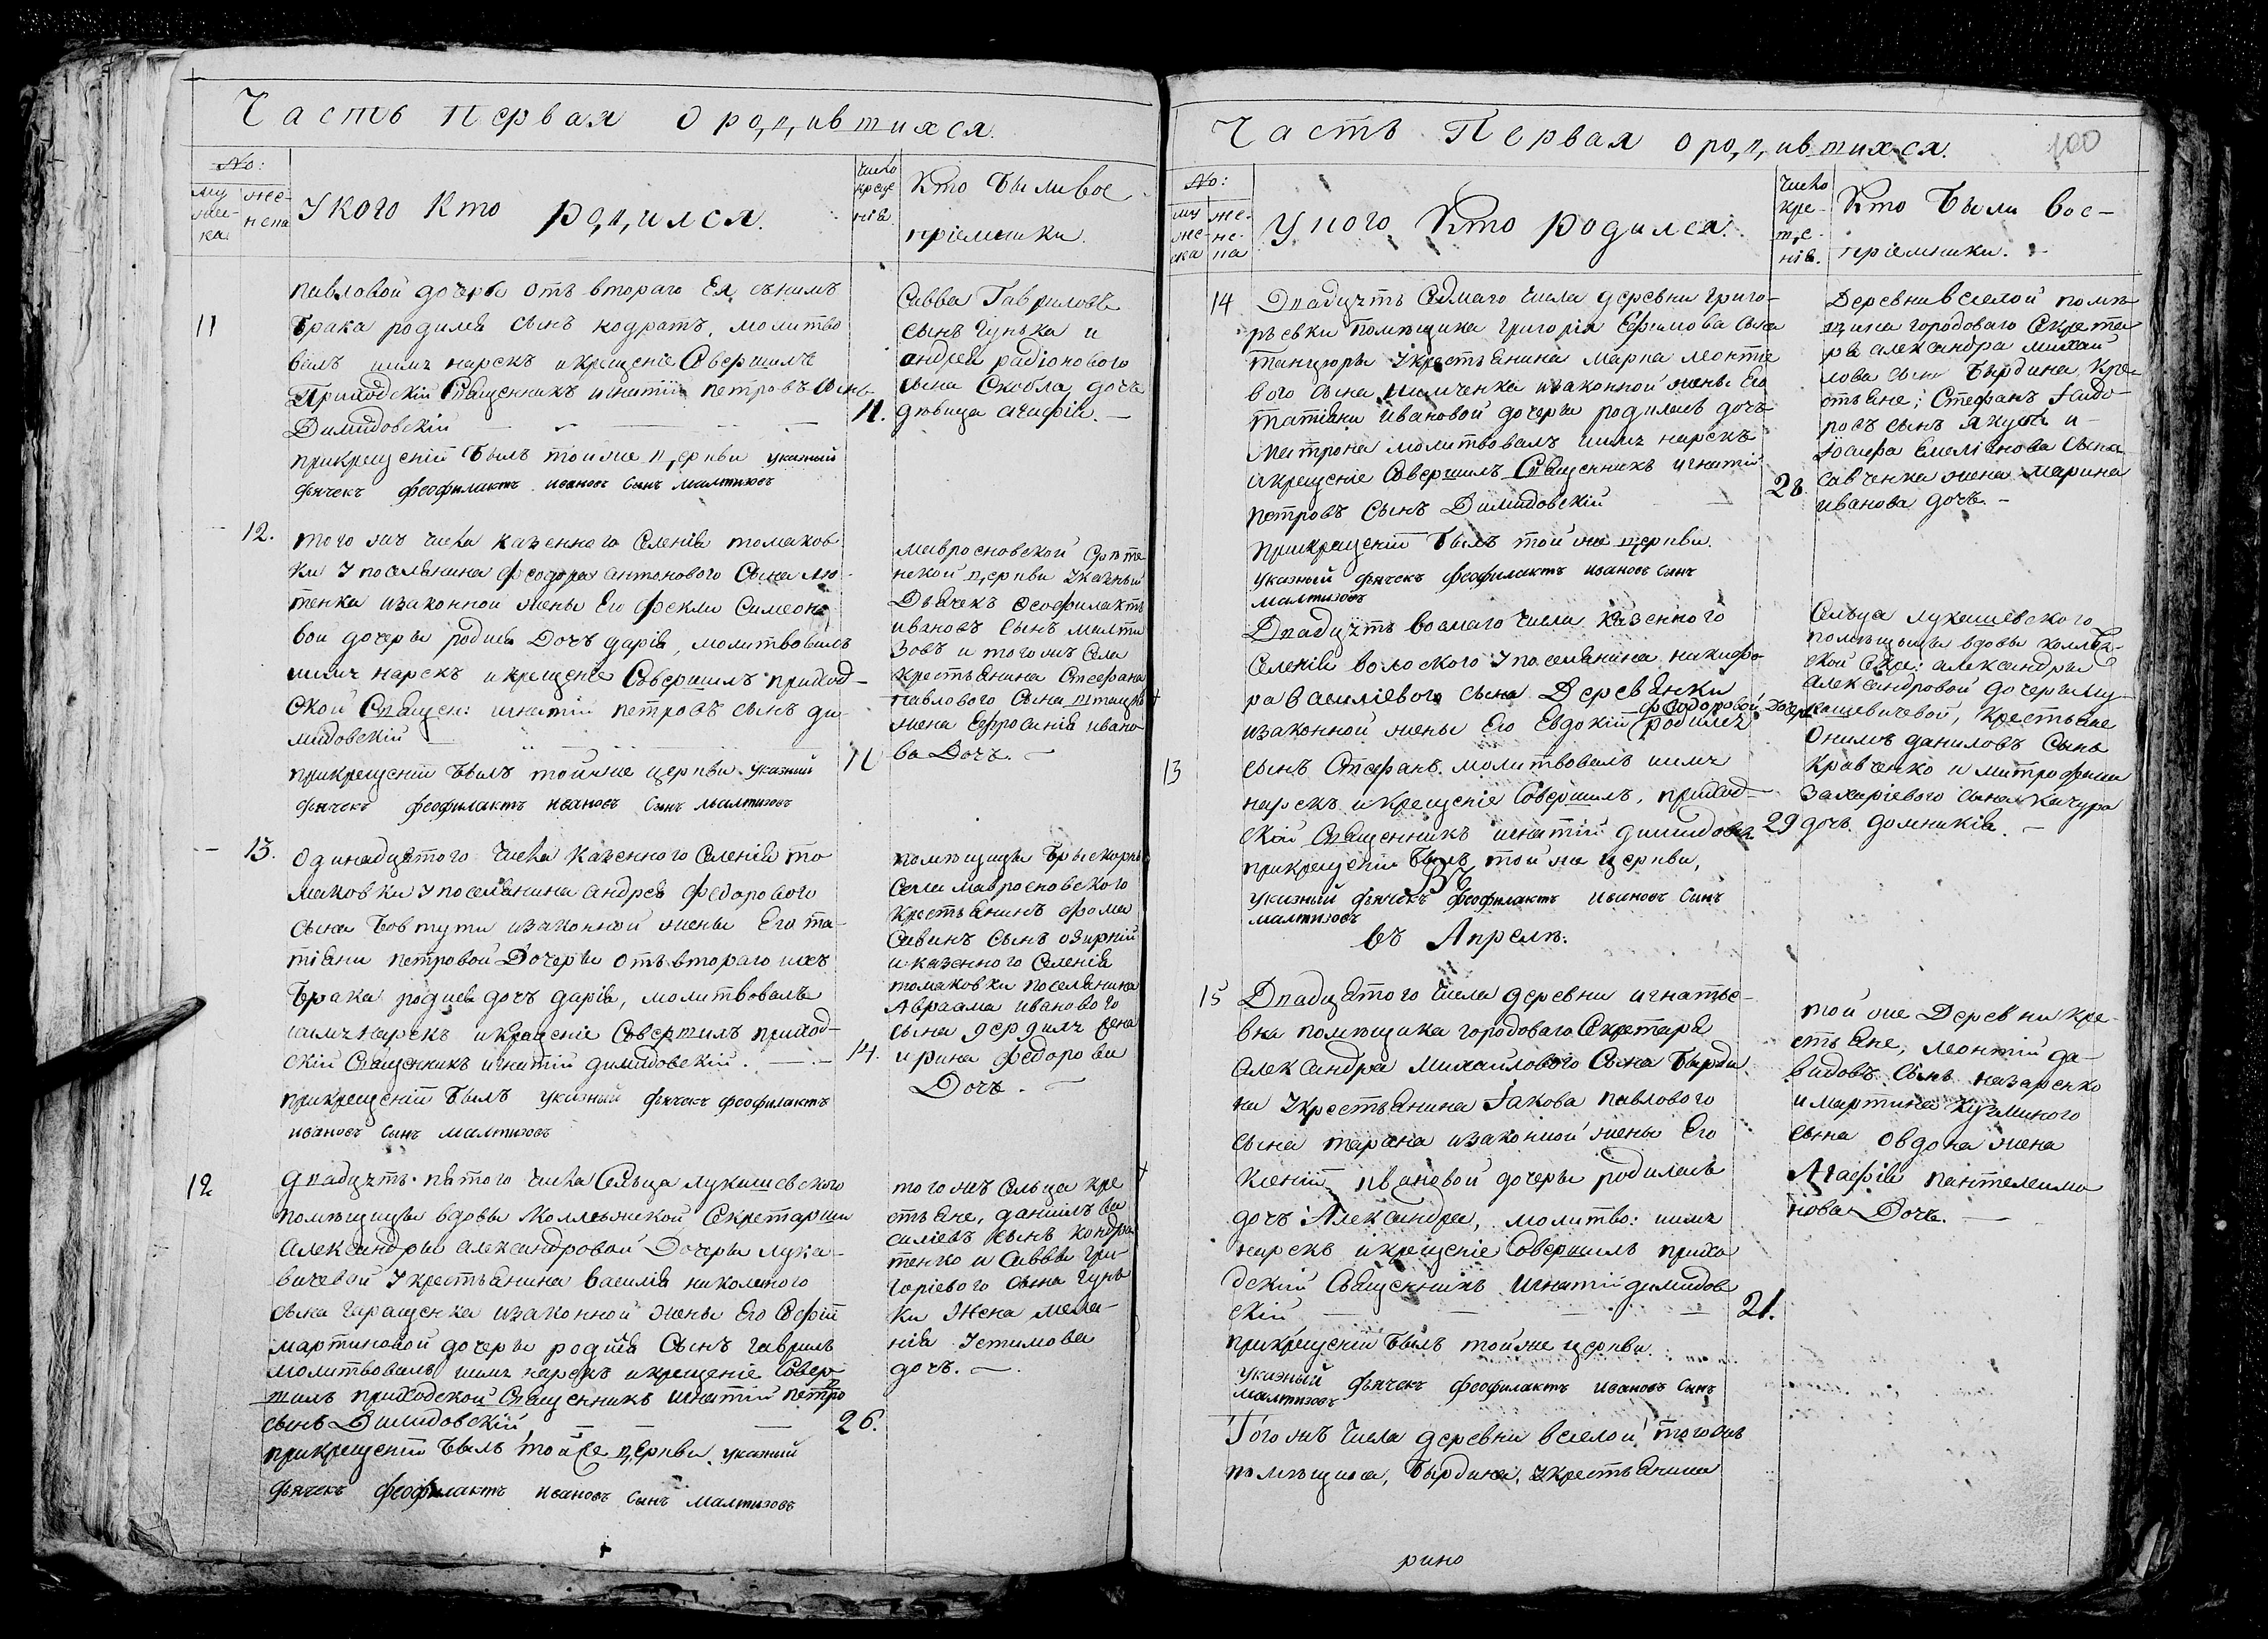 Часть Первая о родившихся.
No:
му
жес
ка
же
нска
У кого Кто родился.
Число
креще
нія
Кто были вос
пріемники.
11
павловой дочери отъ втораго Ея сънимъ
брака родился сынъ кодратъ, молитво
валъ имя нарекъ и крещеніе Совершилъ
Приходскій Священникъ игнатій петровъ Сынъ
Димидовскій
11.
прикрещеніи былъ тойже церкви указный
дьячекъ феофилактъ ивановъ Сынъ малтизовъ
Савва Гавриловъ
сынъ гунька и
андрея радіонового
сына Скобла дочь
девица агафія.
12.
того жъ числа казенного Селенія томаков
ки у поселянина феодора антонового Сына лю
тенка иззаконной жены Его феклы Симеоно
вой дочери родися Дочъ дарія, молитвовалъ
имя нарекъ и крещеніе Совершилъ приход
ской Священ: игнатій петровъ сынъ ди
мидовскій
11
прикрещеніи былъ тойже церкви указный
дьячекъ феофилактъ ивановъ Сынъ малтизовъ
мавроеновской Срете
нской церкви Указный
Дьячекъ феофилактъ
ивановъ сынъ малти
зовъ и того жъ Села
крестьянина Стефана
павлового Сына
жена Ефросинія ивано
ва Дочъ.
13.
Одинадцятого числа казенного Селенія то
маковки у поселянина андрея федорового
сына Бовтути иззаконной жены Его та
тіяни петровой Дочери отъ втораго ихъ
брака родися дочъ дарія, молитвовалъ
имя нарекъ и крещеніе Совершилъ приход
скій Священникъ игнатій димидовскій.
14.
прикрещеніи былъ указный дьячекъ феофилактъ
ивановъ Сынъ малтизовъ
помещицы
Села мавроеновского
крестьянинъ фома
Савинъ Сынъ озирній
и казенного Селенія
томаковки поселянина
Авраама иванового
сына жена
ирина федорова
Дочъ.
12
двадцять пятого числа Сельца лукашевского
помещицы вдовы Коллежской Секретарши
Александры александровой Дочери лука
вичевой У крестьянина василія николиного
сына гаращенка иззаконной жены Его Софіи
мартиновой дочери родися Сынъ гаврилъ
молитвовалъ имя нарекъ и крещеніе Совер
шилъ приходской Священникъ игнатій петро
сынъ Димидовскій
26.
прикрещеніи былъ тойже церкви указный
дьячекъ феофилактъ ивановъ Сынъ малтизовъ
того жъ Сельца кре
стьяне, даніилъ ва
силіевъ сынъ кондра
тенко и Саввы гри
горіевого сына гунь
ки Жена мела
нія Устимова
дочъ.
Часть Первая о родившихся.
100
No:
му
жес
ка
же
нс
ка
У кого Кто родился.
Число
кре
ще
нія.
Кто были вос
пріемники.
14
Двадцять Седмаго числа деревни григо
рьевки помещика григорія Ефимова сына
танцюры Укрестьянина марка леонтіе
вого сына иззаконной жены Его
татіяни ивановой дочери родилась дочъ
матрона молитвовалъ имя нарекъ
икрещеніе Совершилъ Священникъ игнатій
петровъ Сынъ Димидовскій
28.
прикрещеніи былъ той же церкви.
указный дьячекъ феофилактъ ивановъ Сынъ
малтизовъ
Деревни веселой поме
щика городоваго Секрета
ря александра михай
лова сына Бырдина Кре
стьяне; Стефанъ
ровъ сынъ и
Іосифа Емеліянова Сына
савченка жена марина
иванова дочъ.
13
Двадцять восмаго числа казенного
Селенія волоского У поселянина никифо
ра василіевого сына Деревянки
иззаконной жены Его Евдокіи федоровой дочери родился
сынъ Стефанъ молитвовалъ имя
нарекъ и крещеніе Совершилъ, приход
ской Священникъ игнатій димидовск
29
прикрещеніи былъ той же церкви,
указный дьячекъ феофилактъ ивановъ Сынъ
малтизовъ
Сельца лукашевского
помещицы вдовы коллеж
ской Секре: александры
Александровой дочери лу
кашевичевой, крестьяне
данилов Сынъ
кравченко и митрофана
захаріевого сына качура
дочъ домникія.
въ Апреле.
15
Двадцятого числа деревни игнатье
вки помещика городоваго Секретаря
Александра михаилового Сына Бырди
на Укрестьянина Іакова павлового
сына тарана иззаконной жены Его
Ксеніи ивановой дочери родилась
дочъ Александра, молитво: имя
нарекъ икрещеніе Совершилъ прихо
дскій Священникъ игнатій димидов
скій
21.
прикрещеніи былъ тойже церкви.
указный дьячекъ феофилактъ ивановъ Сынъ
малтизовъ
той же Деревни кре
стьяне, леонтій да
видовъ Сынъ назаренко
и мартина кузминого
сына овдона жена
Агафія пантелеимо
нова Дочъ.
Того жъ числа деревни веселой тогожъ
помещика, Бырдина, Укрестьянина
рино